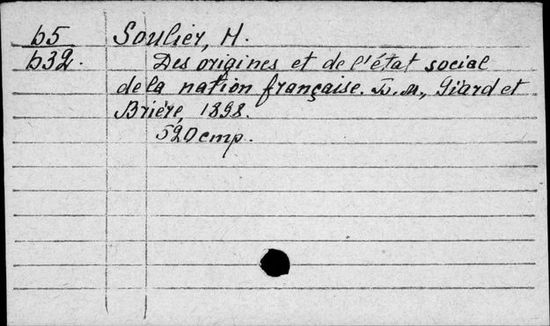 65 Soulier, H.
632. Des origines et de l'état social
de la nation française. Б.м., Giard et
Brière, 1898.
520 стр.